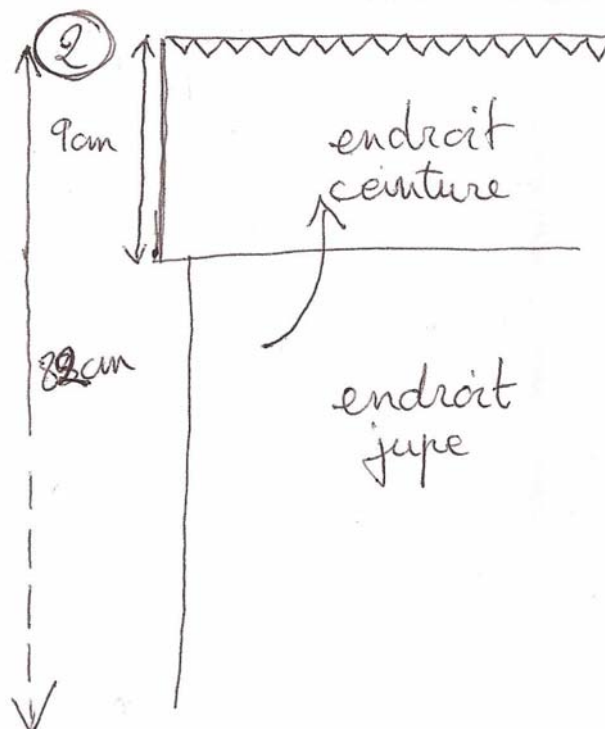 2
9cm
endroit
ceinture
82cm
endroit
jupe